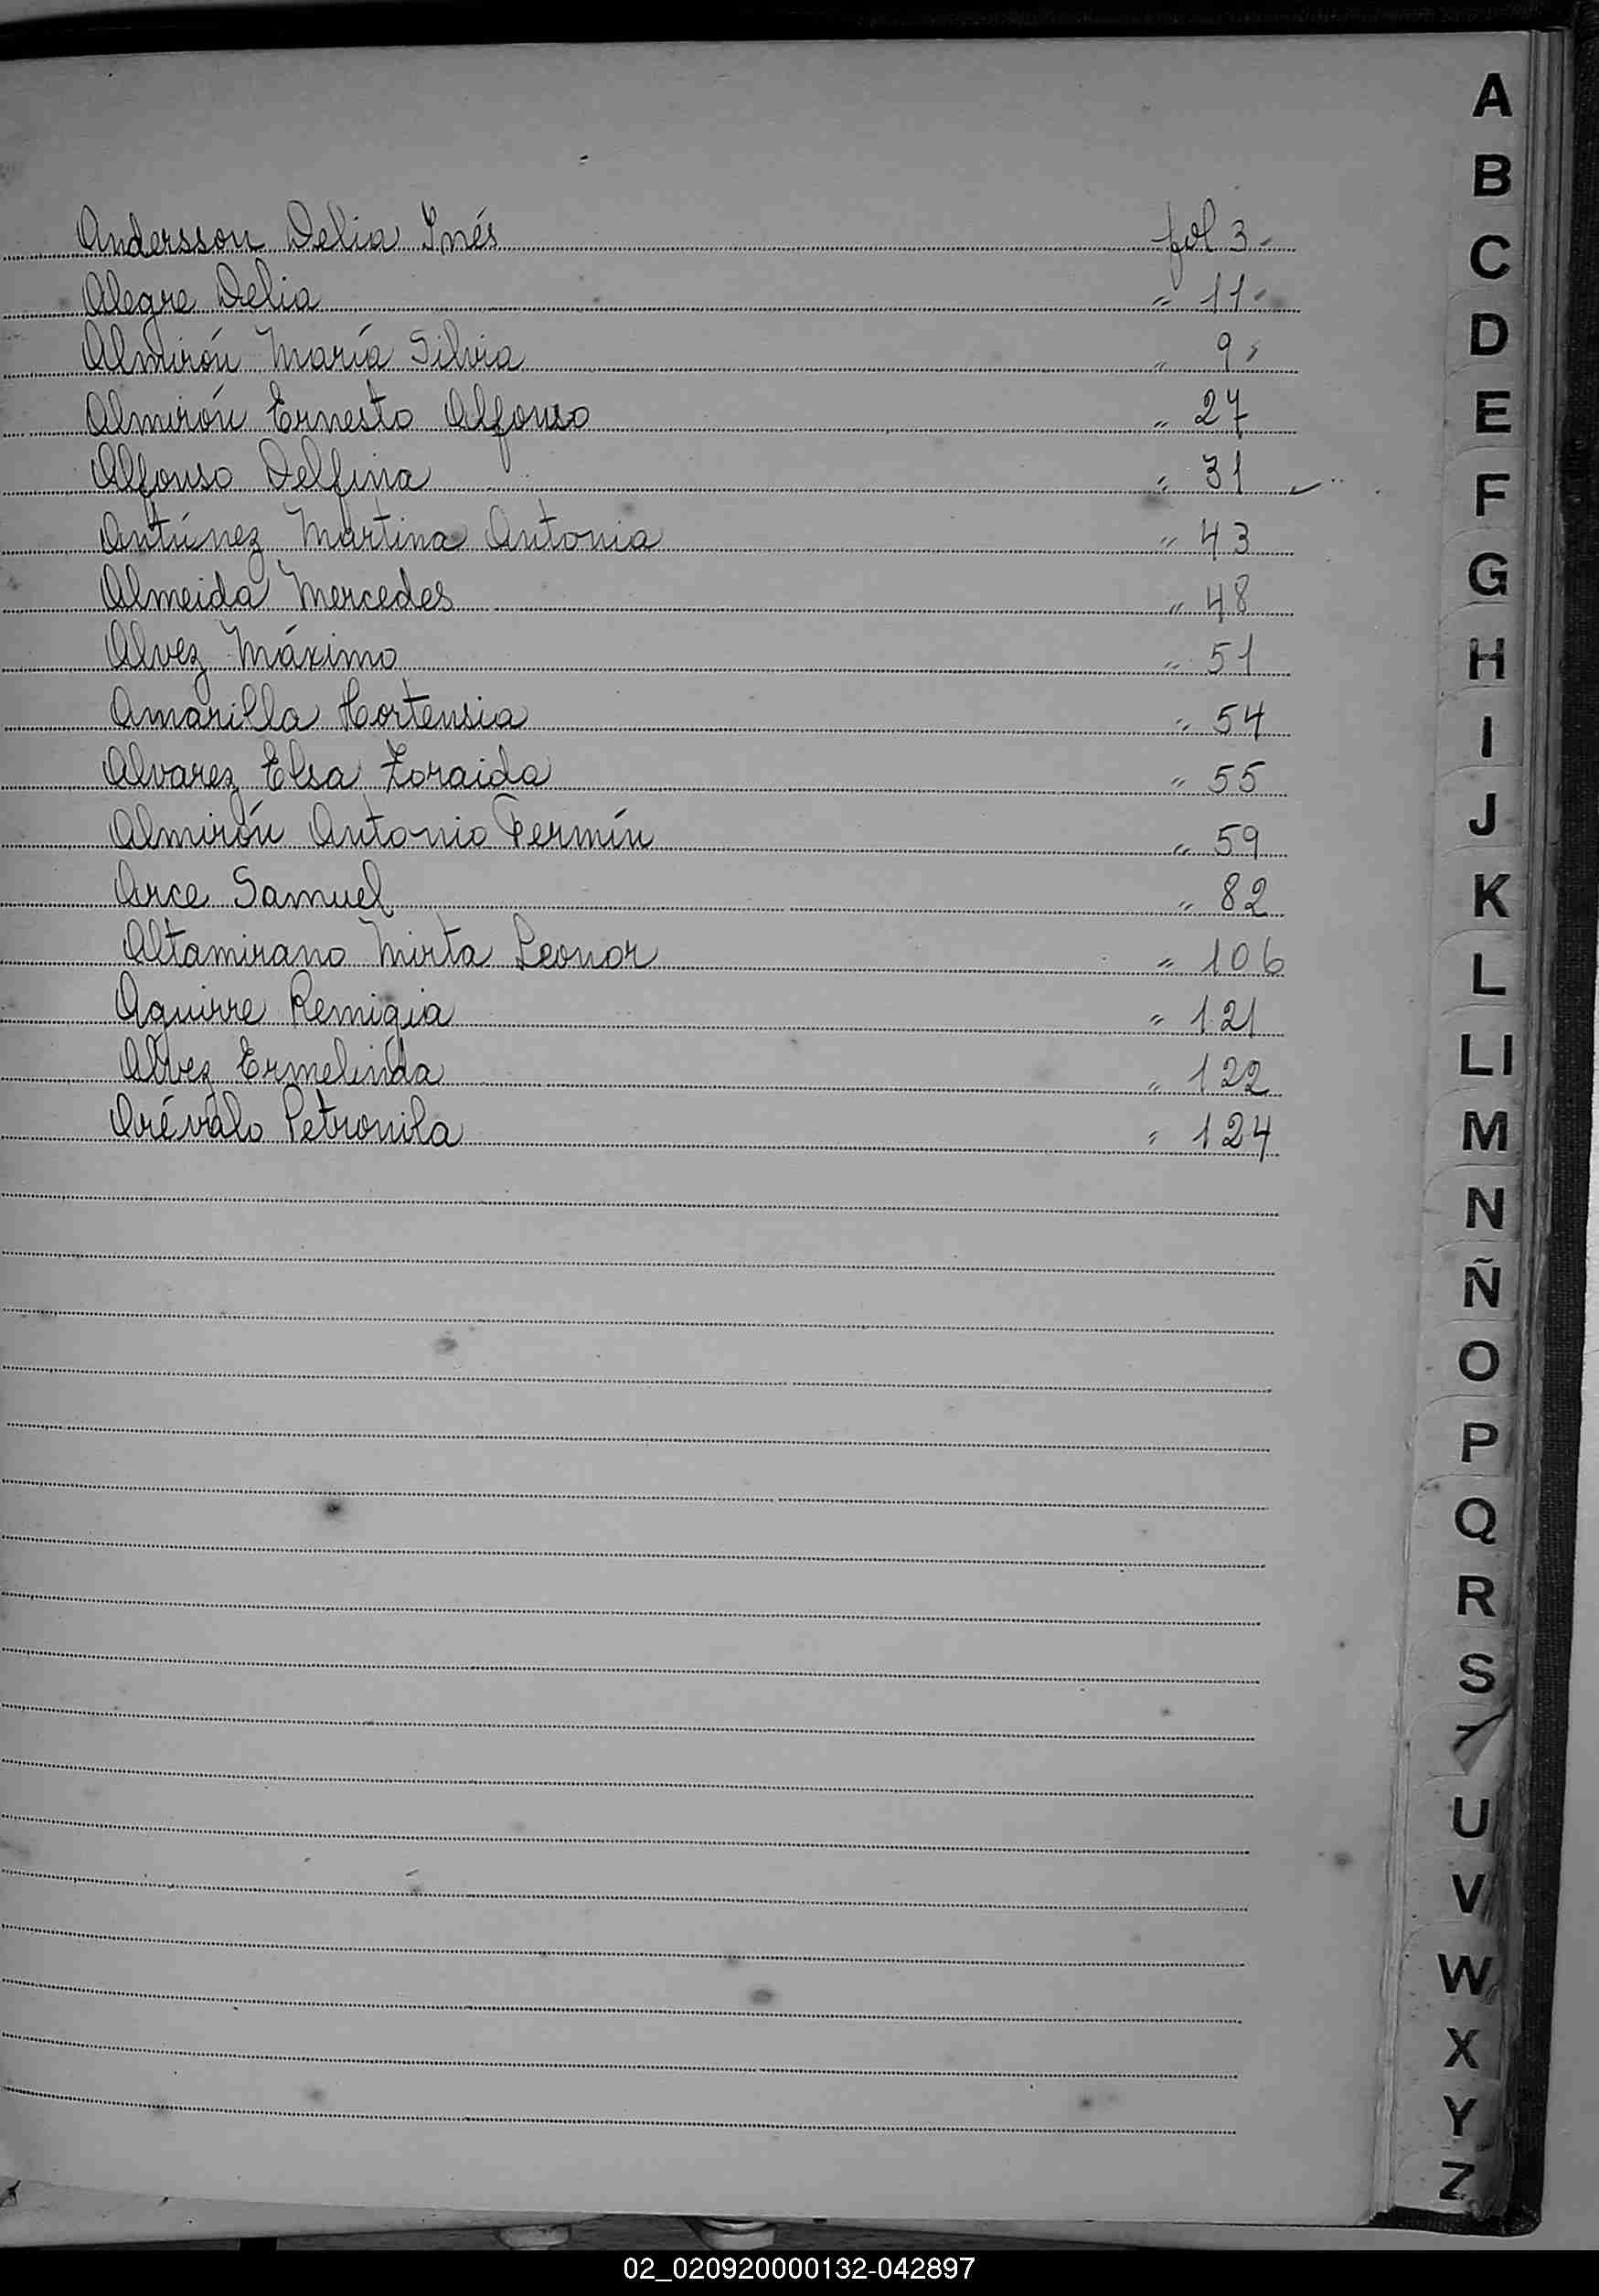 Andersson Delia Inés fol 3-
Alegre Delia " 11-
Almirón María Silvia " 9-
Almirón Ernesto Alfonso " 27
Alfonso Delfina " 31
Antúnez Martina Antonia " 43
Almeida Mercedes " 48
Alvez Máximo " 51
Amarilla Hortensia " 54
Alvarez Elsa Zoraida " 55
Almirón Antonio Fermín " 59
Arce Samuel " 82
Altamirano Mirta Leonor " 106
Aguirre Remigia " 121
Alvez Ermelinda " 122
Arévalo Petronila " 124
A
B
C
D
E
F
G
H
I
J
K
L
Ll
M
N
Ñ
O
P
Q
R
S
U
V
W
X
Y
Z
02_020920000132-042897